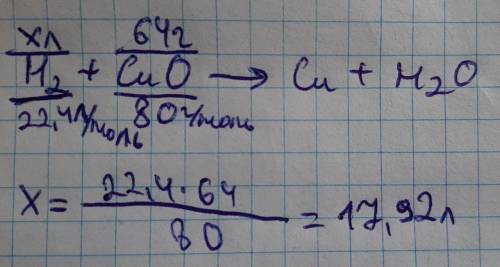 хл 64г
H₂ + CuO → Cu + H₂O
22,4л/моль 80г/моль
X = 22,4 · 64 / 80 = 17,92л